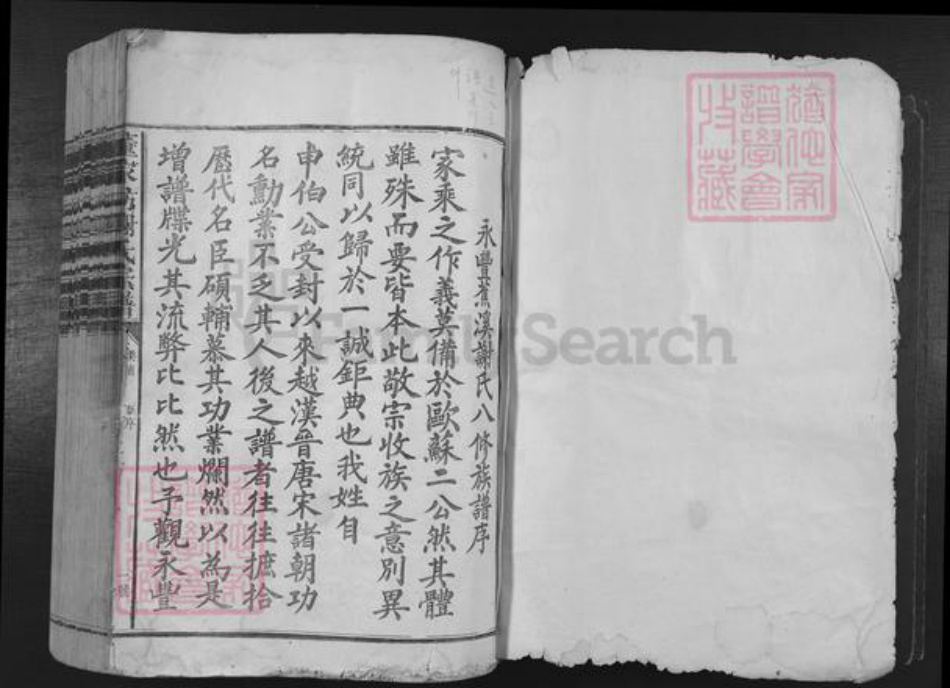 永豐蕉溪謝氏八修族譜序
家乘之作義莫備於歐蘇二公然其體
雖殊而要皆本此敬宗收族之意別異
統同以歸於一誠鉅典也我姓自
申伯公受封以來越漢晉唐宋諸朝功
名勳業不乏其人後之譜者往往摭拾
歷代名臣碩輔慕其功業爛然以為是
增譜牒光其流弊比比然也予觀永豐
譜學會
收藏
FamilySearch